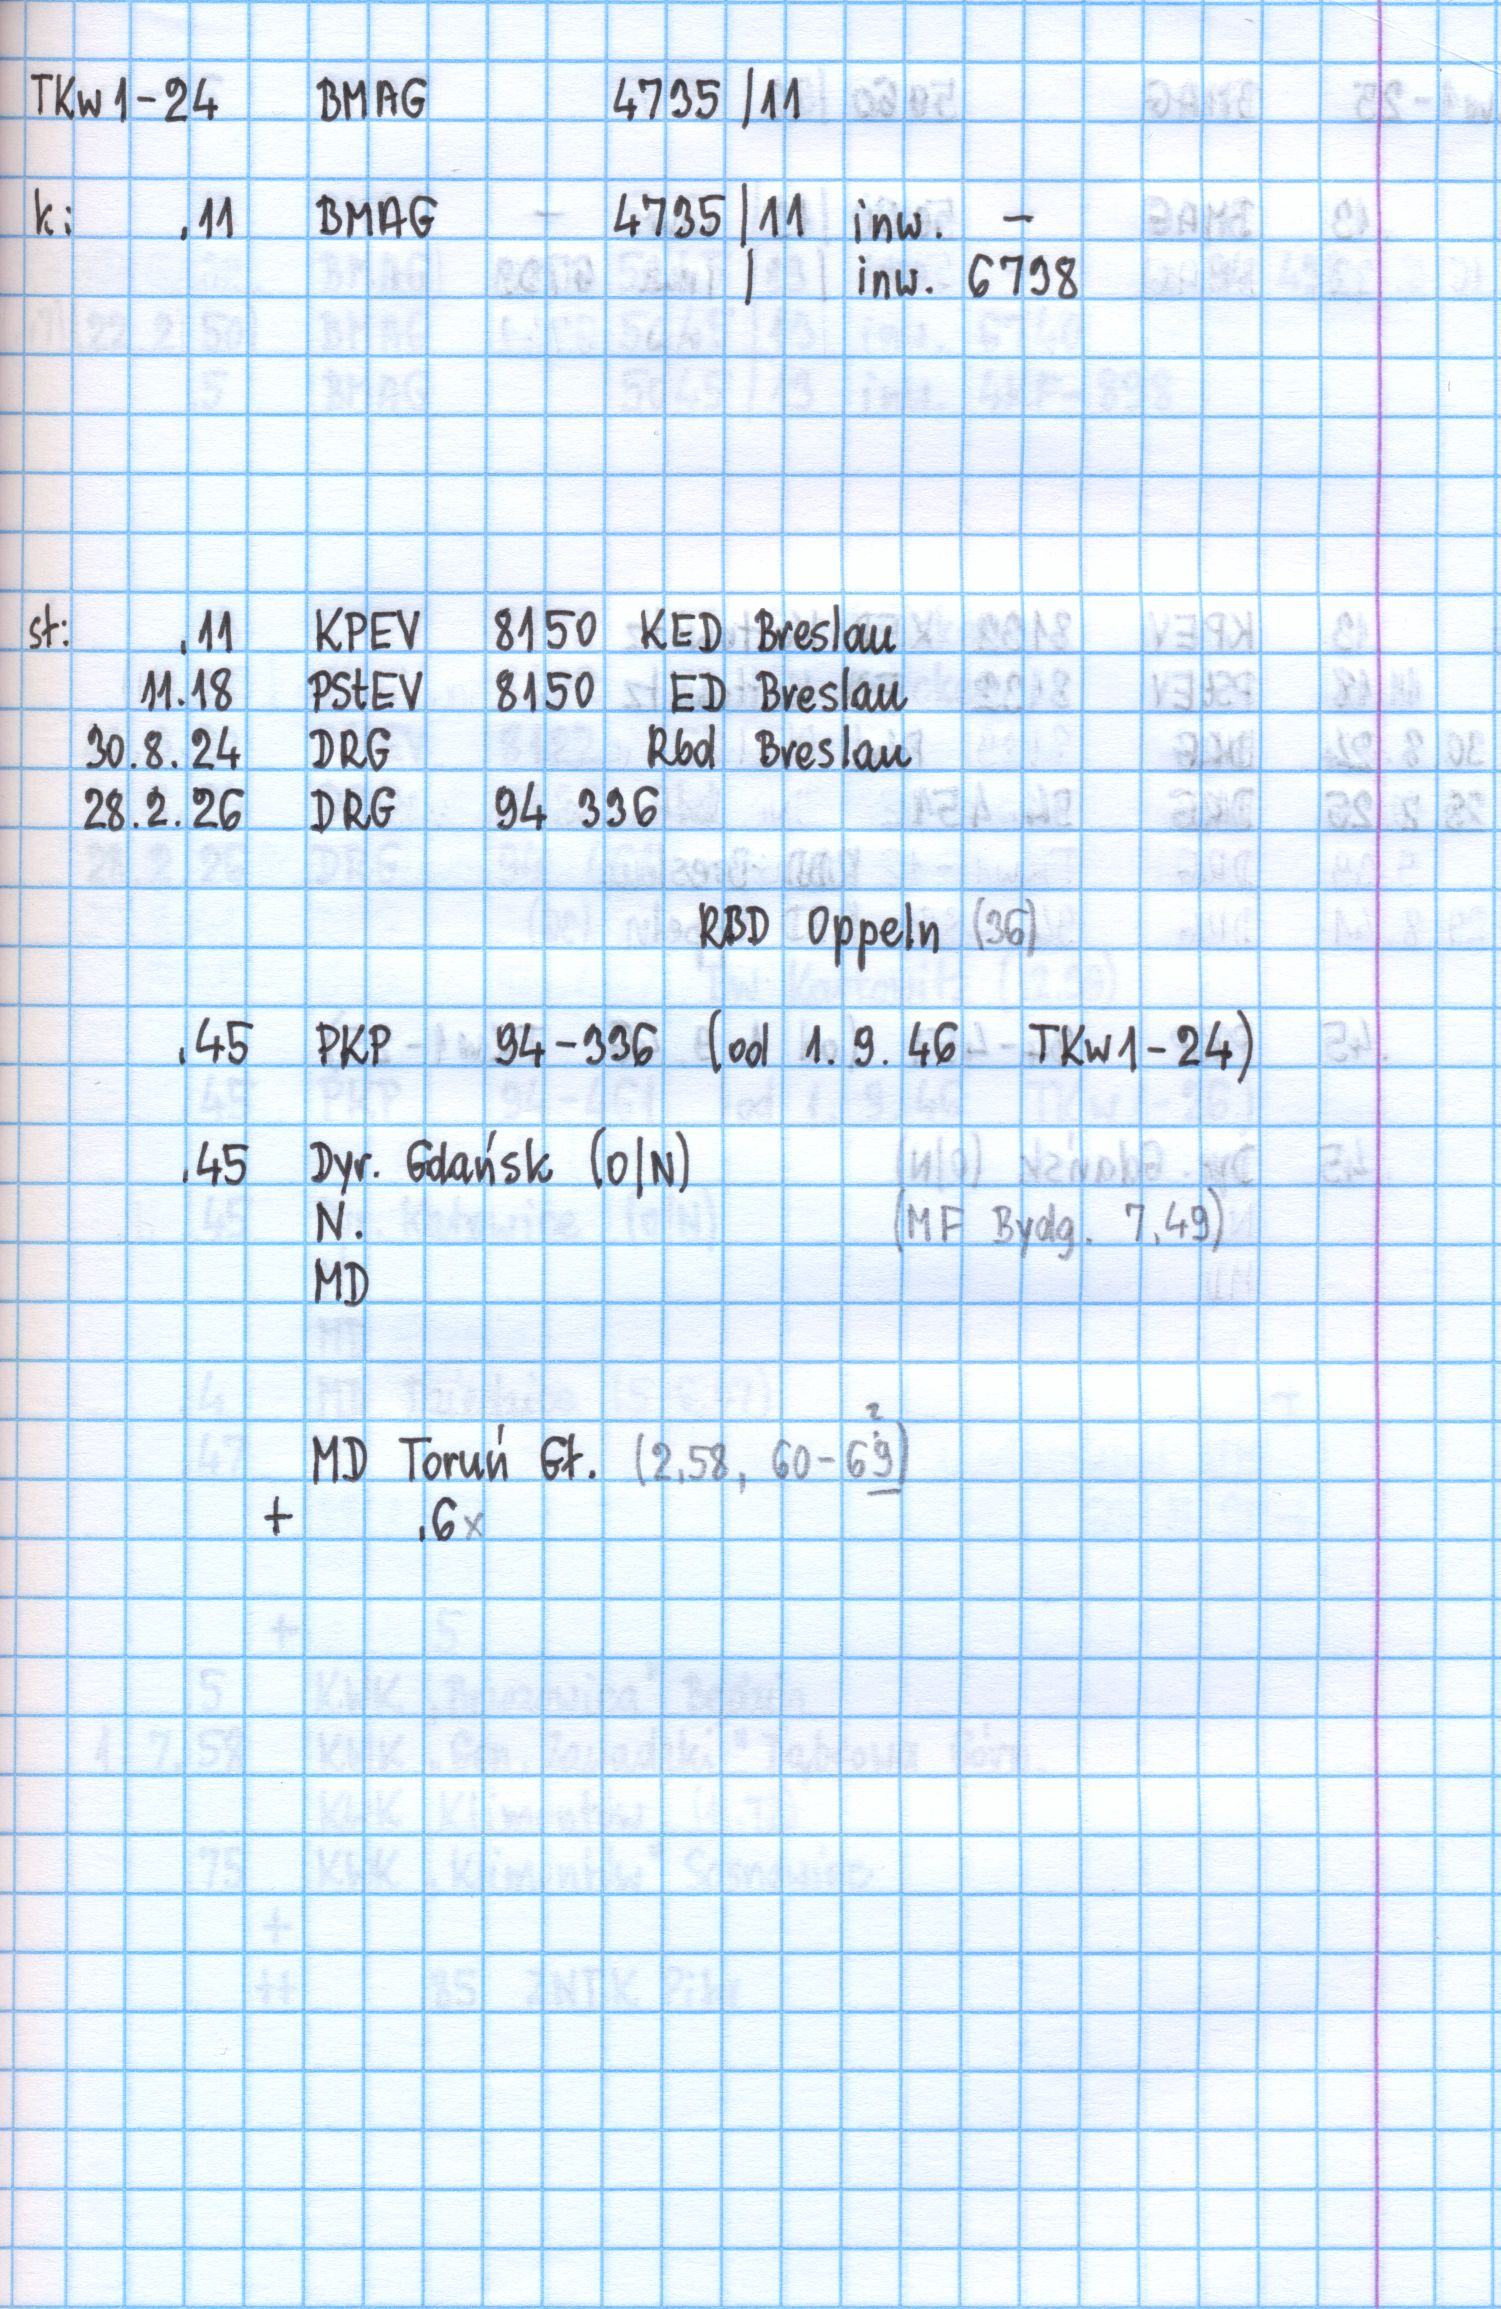 TKw1-24 BMAG 4735/11
k: .11 BMAG 4735/11 inw. -
| inw. 6798
st: .11 KPEV 8150 KED Breslau
11.18 PStEV 8150 ED Breslau
30.8.24 DRG Rbd Breslau
28.2.26 DRG 94 336
RBD Oppeln (36)
.45 PKP 94-336 (od 1.9.46 TKw1-24)
.45 Dyr. Gdańsk (O/N)
N. (MF Bydg. 7,49)
MD
?
MD Toruń Gł. (2,58, 60-69)
+ .6x